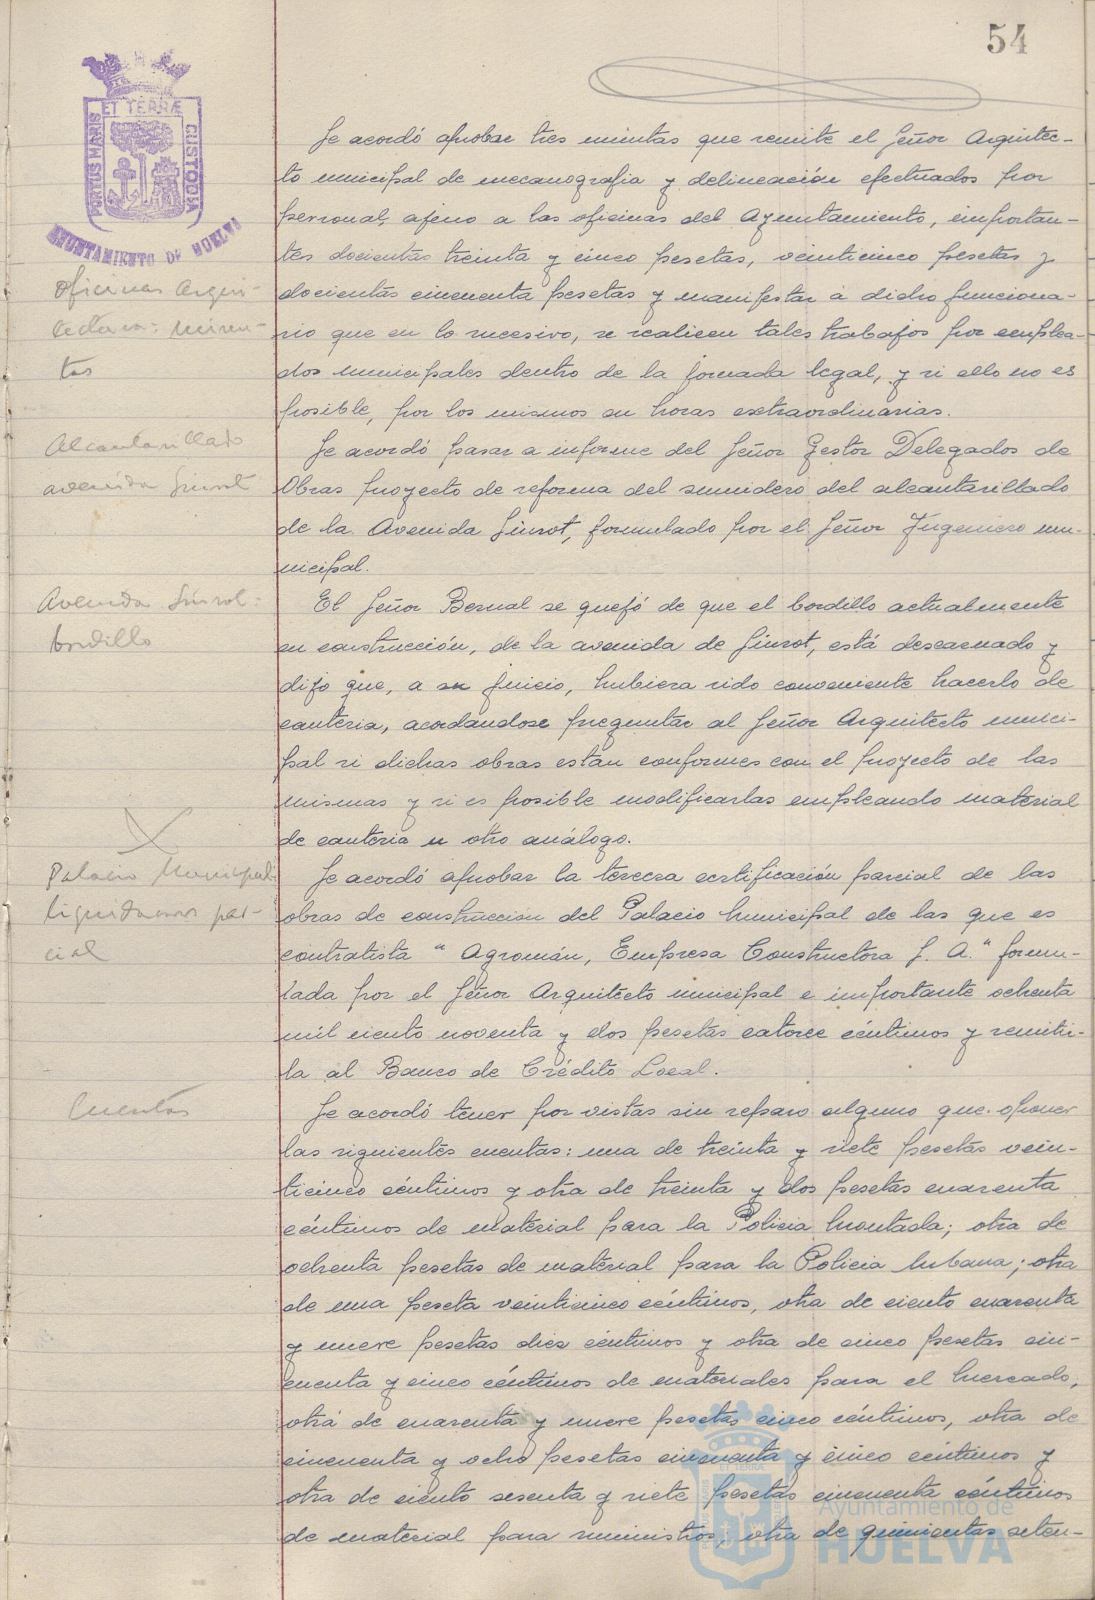 54
PORTUS MARIS ET TERRÆ CUSTODIA
AYUNTAMIENTO DE HUELVA
Se acordó aprobar tres minutas que remite el Señor Arquitec-
to municipal de mecanografia y delineación efectuados por
personal, ajeno a las oficinas del Ayuntamiento, importan-
tes docientas treinta y cinco pesetas, veinticinco pesetas y
docientas cincuenta pesetas y manifestar a dicho funciona-
rio que en lo sucesivo, se realicen tales trabajos por emplea-
dos municipales dentro de la jornada legal, y si ello no es
posible, por los mismos en horas extraordinarias.
Oficinas Arqui-
tectura: minu-
tas
Se acordó pasar a informe del Señor Gestor Delegados de
Obras proyecto de reforma del sumidero del alcantarillado
de la Avenida Guirot, formulado por el Señor Ingeniero mu-
nicipal.
Alcantarillado
avenida Guirot
El Señor Bernal se quejó de que el bordillo actualmente
en construcción, de la avenida de Guirot, está descarnado y
dijo que, a su juicio, hubiera sido conveniente hacerlo de
canteria, acordandose preguntar al Señor Arquitecto munici-
pal si dichas obras están conformes con el proyecto de las
mismas y si es posible modificarlas empleando material
de canteria u otro análogo.
Avenida Guirot:
bordillo
Se acordó aprobar la tercera certificación parcial de las
obras de construccion del Palacio Municipal de las que es
contratista "Agromán, Empresa Constructora S. A." formu-
lada por el Señor Arquitecto municipal e importante ochenta
mil ciento noventa y dos pesetas catorce céntimos y remitir-
la al Banco de Crédito Local.
Palacio Municipal
liquidacion par-
cial
Se acordó tener por vistas sin reparo alguno que oponer
las siguientes cuentas: una de treinta y siete pesetas vein-
ticinco céntimos y otra de treinta y dos pesetas cuarenta
céntimos de material para la Policia Montada; otra de
ochenta pesetas de material para la Policia Urbana; otra
de una peseta veinticinco céntimos, otra de ciento cuarenta
y nueve pesetas diez céntimos y otra de cinco pesetas cin-
cuenta y cinco céntimos de materiales para el Mercado;
otra de cuarenta y nueve pesetas cinco céntimos, otra de
cincuenta y ocho pesetas cincuenta y cinco céntimos y
otra de ciento sesenta y siete pesetas cincuenta céntimos
de material para suministros; otra de quinientas seten-
Cuentas
Ayuntamiento de
HUELVA